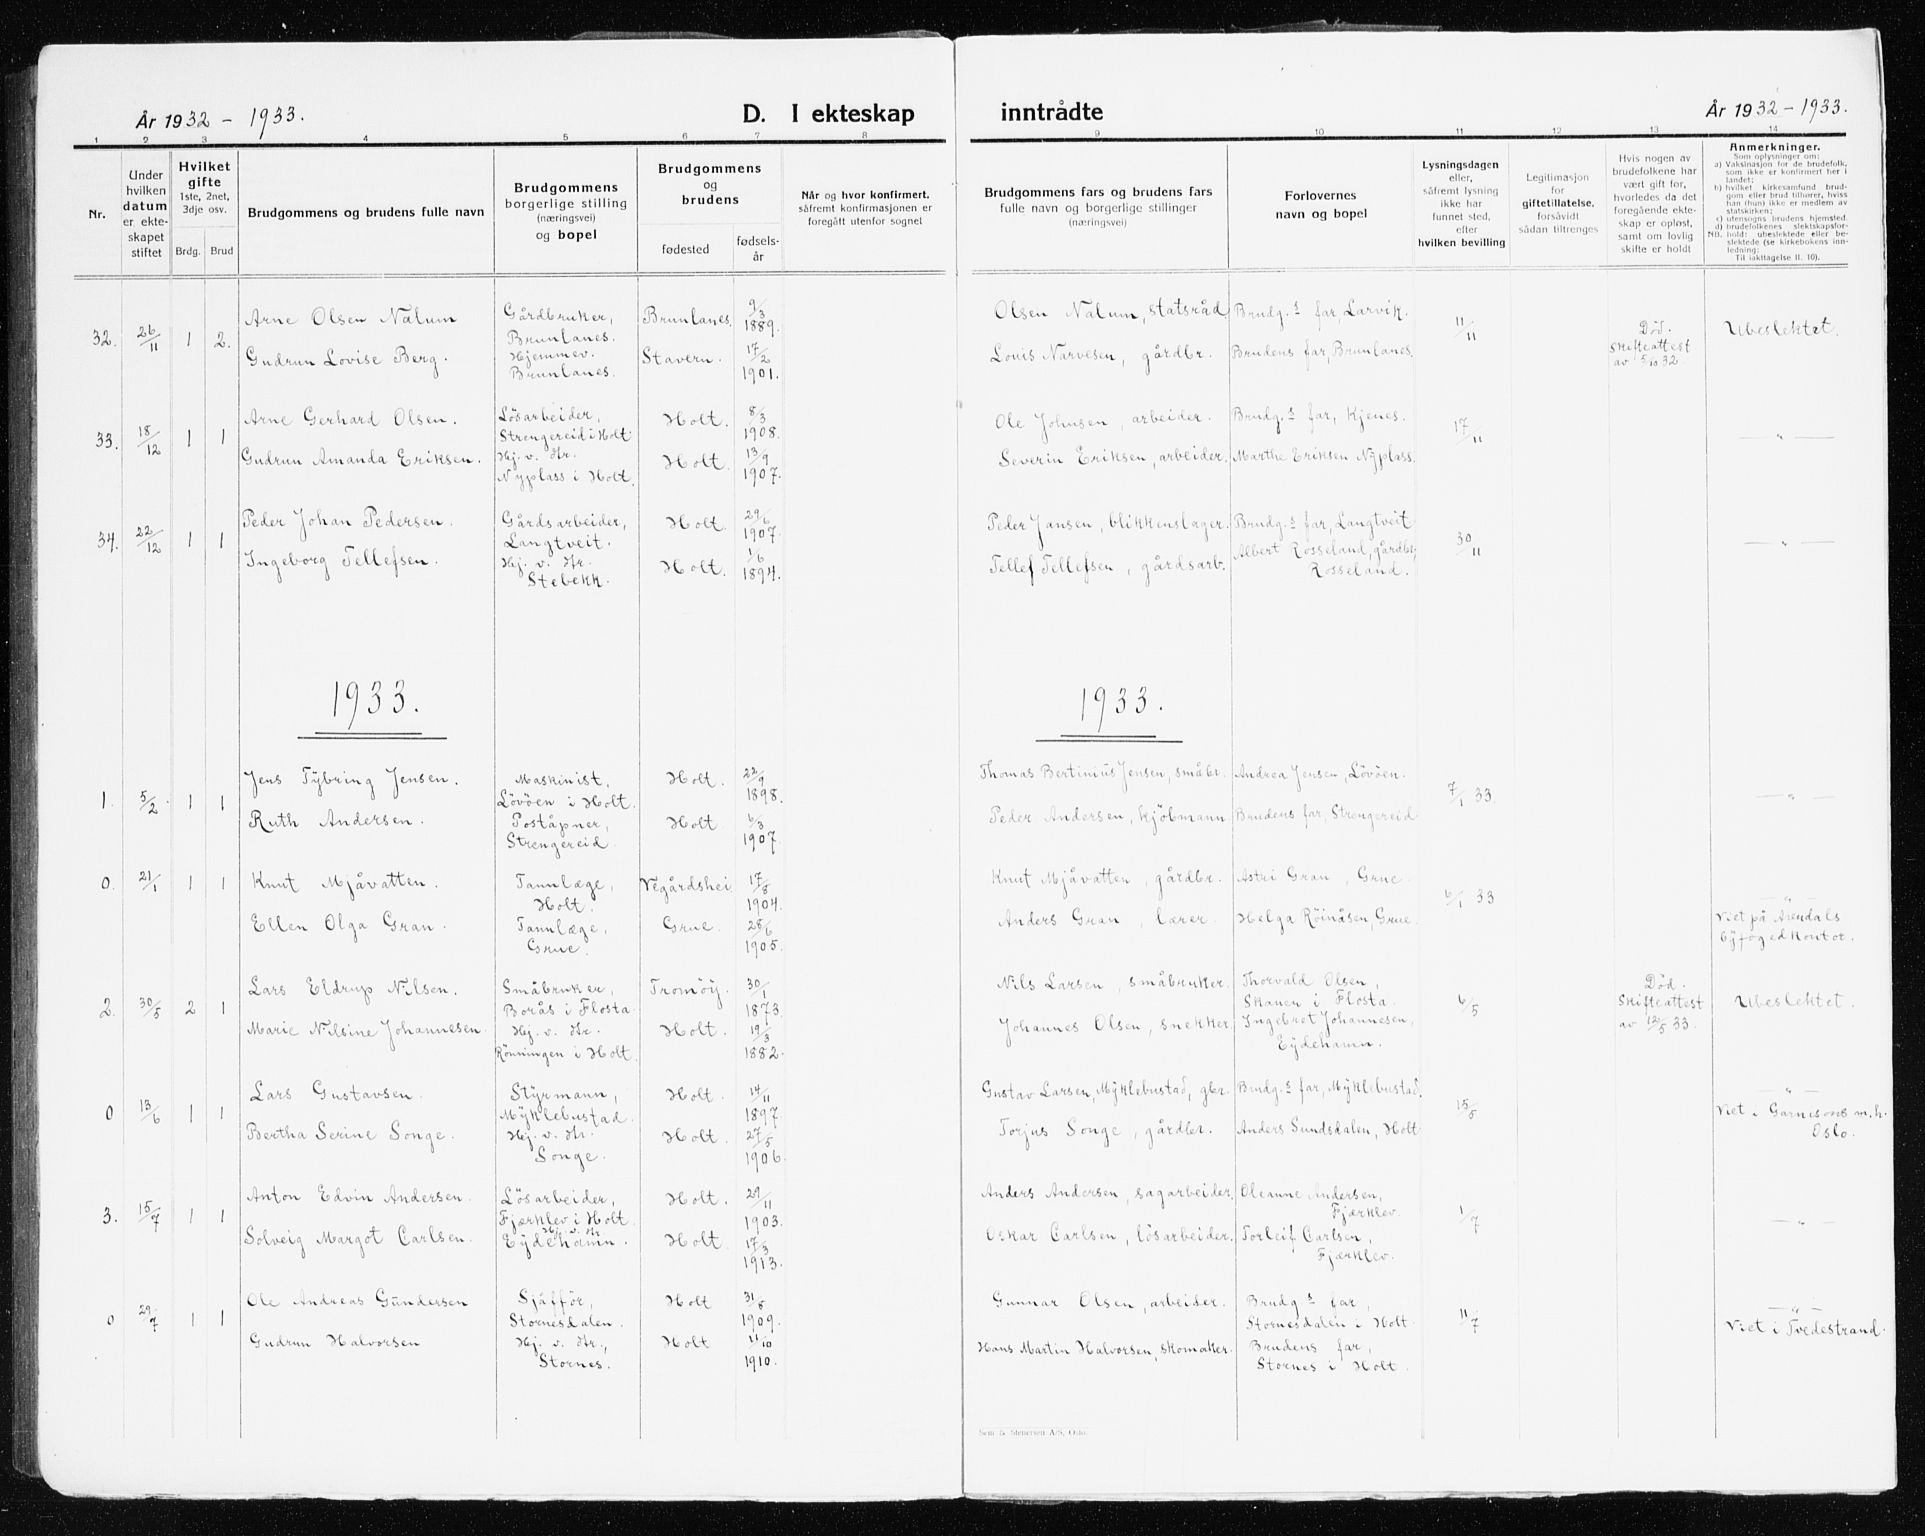 År 1932 - 1933.
D. I ekteskap inntrådte
År 1932 - 1933.
1 2 3 4 5 6 7 8 9 10 11 12 13 14
Nr.
Under
hvilken
datum
er ekte-
skapet
stiftet
Hvilket
gifte
1ste, 2net,
3dje osv.
Brdg. Brud
Brudgommens og brudens fulle navn
Brudgommens
borgerlige stilling
(næringsvei)
og bopel
Brudgommens
og
brudens
fødested
fødsels-
år
Når og hvor konfirmert,
såfremt konfirmasjonen er
foregått utenfor sognet
Brudgommens fars og brudens fars
fulle navn og borgerlige stillinger
(næringsvei)
Forlovernes
navn og bopel
Lysningsdagen
eller,
såfremt lysning
ikke har
funnet sted,
efter
hvilken bevilling
Legitimasjon
for
giftetillatelse,
forsåvidt
sådan tiltrenges
Hvis nogen av
brudefolkene har
vært gift før,
hvorledes da det
foregående ekte-
skap er opløst,
samt om lovlig
skifte er holdt
Anmerkninger.
Som oplysninger om:
a) Vaksinasjon for de brudefolk,
som ikke er konfirmert her i
landet;
b) hvilket kirkesamfund brud-
gom eller brud tilhører, hviss
han (hun) ikke er medlem av
statskirken;
c) utensogns brudens hjemsted.
d) brudefolkenes slektskapsfor-
NB. hold: ubeslektede eller be-
slektede (se kirkebokens inn-
ledning:
Til iakttagelse II. 10).
32. 26/11 1 2.
Arne Olsen Nalum
Gudrun Lovise Berg.
Gårdbruker,
Brunlanes.
Hjemmev.
Brunlanes.
Brunlanes.
Stavern.
9/3
1889.
17/2
1901.
Olsen Nalum, statsråd
Louis Narvesen, gårdbr.
Brudg.s far, Larvik.
Brudens far, Brunlanes.
11/11
Død.
Skifteattest
av 5/10 32
Ubeslektet.
33. 18/12 1 1
Arne Gerhard Olsen.
Gudrun Amanda Eriksen.
Løsarbeider,
Strengereid i Holt
Hj. v. Hr.
Nyplass i Holt.
Holt.
Holt.
8/3
1908.
13/9
1907.
Ole Johnsen, arbeider.
Severin Eriksen, arbeider.
Brudg.s far, Kjenes.
Marthe Eriksen Nyplass.
17/11
— " —
34. 22/12 1 1
Peder Johan Pedersen.
Ingeborg Tellefsen.
Gårdsarbeider,
Langtveit.
Hj. v. Hr.
Stebekk.
Holt.
Holt.
29/6
1907.
1/6
1894.
Peder Jansen, blikkenslager.
Tellef Tellefsen, gårdsarb.
Brudg.s far, Langtveit
Albert Rosseland, gårdbr,
Rosseland.
30/11
— " —
1933.
1933.
1. 5/2 1 1
Jens Tybring Jensen.
Ruth Andersen.
Maskinist,
Løvøen i Holt.
Poståpner,
Strengereid.
Holt.
Holt.
22/9
1898.
6/3
1907.
Thomas Bertinius Jensen, småbr.
Peder Andersen, kjøbmann
Andrea Jensen, Løvøen.
Brudens far, Strengereid
7/1 33.
— " —
0. 21/1 1 1
Knut Mjåvatten.
Ellen Olga Gran.
Tannlæge,
Holt.
Tannlæge,
Grue.
Vegårdshei
Grue.
17/8
1904.
28/6
1905.
Knut Mjåvatten, gårdbr.
Anders Gran, lærer.
Astri Gran, Grue.
Helga Røinåsen, Grue.
6/1 33
— " —
Viet på Arendals
byfogedkontor.
2. 30/5 2 1
Lars Eldrup Nilsen.
Marie Nilsine Johannesen.
Småbruker,
Borås i Flosta.
Hj. v. Hr.
Rønningen i Holt.
Tromøy.
Holt.
30/1
1873.
19/3
1882.
Nils Larsen, småbruker.
Johannes Olsen, snekker.
Thorvald Olsen,
Skanen i Flosta.
Ingebret Johannesen,
Eydehamn.
6/5
Død.
Skifteattest
av 12/5 33.
Ubeslektet.
0 13/6 1 1
Lars Gustavsen.
Bertha Serine Songe.
Styrmann,
Myklebustad.
Hj. v. Hr.
Songe.
Holt.
Holt.
14/11
1897
27/5
1906.
Gustav Larsen, Myklebustad, gbr.
Torjus Songe, gårdbr.
Brudg.s far, Myklebustad.
Anders Sundsdalen, Holt
15/5
— " —
Viet i Garnisons m.h.
Oslo.
3. 15/7 1 1
Anton Edvin Andersen.
Solveig Margot Carlsen.
Løsarbeider,
Fjærklev i Holt.
Hj. v. Hr
Eydehamn.
Holt.
Holt.
29/11
1903.
17/3
1913.
Anders Andersen, sagarbeider.
Oskar Carlsen, løsarbeider.
Oleanne Andersen,
Fjærklev.
Torleif Carlsen,
Fjærklev.
1/7
— " —
0 29/7 1 1
Ole Andreas Gundersen
Gudrun Halvorsen
Sjåffør,
Stornesdalen.
Hj. v. Hr.,
Stornes.
Holt
Holt
31/8
1909.
11/10
1910.
Gunnar Olsen, arbeider.
Hans Martin Halvorsen, skomaker.
Brudg.s far,
Stornesdalen i Holt.
Brudens far,
Stornes i Holt.
11/7
— " —
Viet i Tvedestrand.
Sem & Stenersen A/S, Oslo.